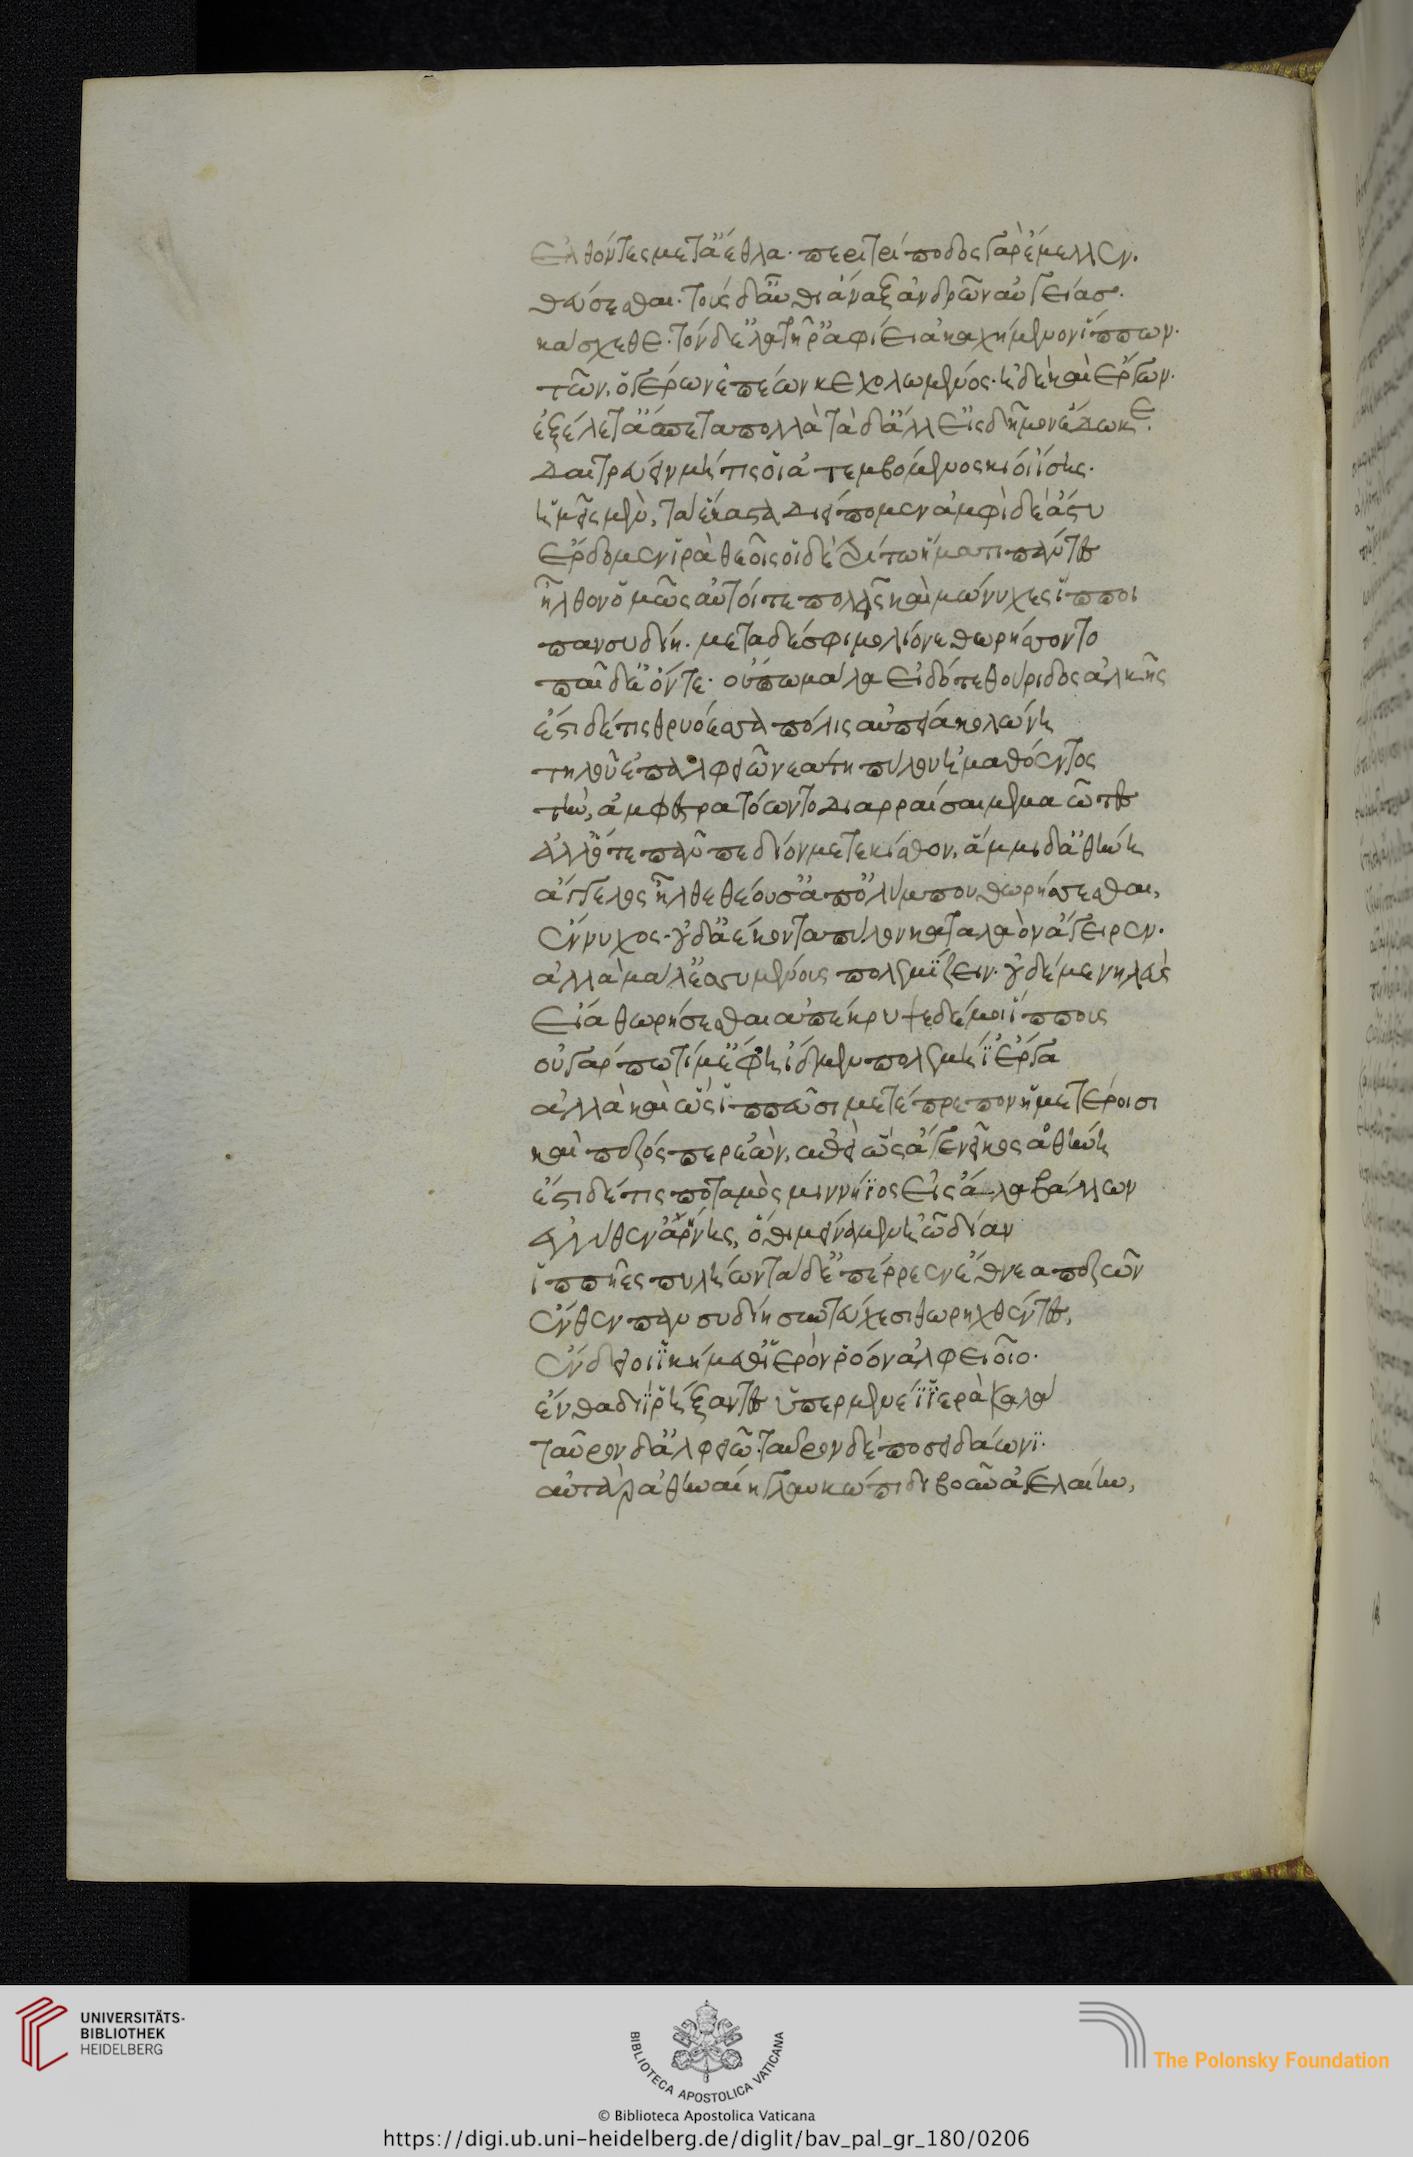 ἐλθόντες μετ' ἄεθλα· περὶ τρίποδος γὰρ ἔμελλεν·
θεύσεσθαι· τοὺς δ' αὖθι ἄναξ ἀνδρῶν αὐγείας·
κάσχεθε· τὸν δ' ἐλατῆρ' ἀφίει ἀκαχήμενον ἵππων·
τῶν, ὁ γέρων ἐπέων κεχολωμένος· ἠδὲ καὶ ἔργων·
ἐξέλετ' ἄσπετα πολλὰ τὰ δ' ἄλλ' εἰς δῆμον ἔδωκε·
δαιτρεύειν μή τις οἱ ἀτεμβόμενος κίοι ἴσης·
ἡμεῖς μὲν, τὰ ἕκαστα διείπομεν ἀμφὶ δὲ ἄστυ
ἔρδομεν ἱρὰ θεοῖς οἱ δὲ τρίτω ἤματι πάντες
ἦλθον ὁμῶς αὐτοί τε πολλεῖς καὶ μώνυχες ἵπποι
πανσυδίη· μετὰ δέ σφι μολίονε θωρήσσοντο
παῖδ' ἔ' ὄντε· οὔπω μάλα εἰδότε θούριδος ἀλκῆς
ἔστι δέ τις θρυόεσσα πόλις αἰπεῖα κολώνη
τηλοῦ ἐπ' ἀλφειῶ νεάτη πύλου ἠμαθόεντος
τὴν, ἀμφεστρατόωντο διαρραίσαι μεμαῶτες
ἀλλ' ὅτε πᾶν πεδίον μετεκίαθον, ἄμμι δ' ἀθήνη
ἄγγελος ἦλθε θέουσ' ἀπ' ὀλύμπου θωρήσσεσθαι,
ἔννυχος· οὐδ' ἀέκοντα πύλον κατὰ λαὸν ἄγειρεν·
ἀλλὰ μάλ' ἐσσυμένοις πολεμίζειν· οὐδέ με νηλεὺς
εἴα θωρήσεσθαι ἀπέκρυψε δέ μοι ἵππους
οὐ γάρ πω τί μ' ἔφη ἴδμεν πολεμήϊ ἔργα
ἀλλὰ καὶ ὣς ἱππεῦσι μετέπρεπον ἡμετέροισι
καὶ πεζός περ ἐὼν, ἐπεὶ ὣς ἄγε νεῖκος ἀθήνη
ἔστι δέ τις ποταμὸς μιννήϊος εἰς ἅλα βάλλων
ἀγγύθεν ἀρήνης, ὅθι μείναμεν ἠῶ δῖαν
ἱππῆες πυλίων τὰ δ' ἐπέρρεεν ἔθνεα πεζῶν
ἔνθεν πανσυδίη σὺν τεύχεσι θωρηχθέντες,
ἔνδειοι ἱκήμεσθ' ἱερὸν ῥόον ἀλφειοῖο·
ἔνθα διῒ ῥέξαντες ὑπερμενέϊ ἱερὰ καλὰ
ταῦρον δ' ἀλφειῶ· ταῦρον δὲ ποσειδάωνϊ·
αὐτὰρ ἀθηναίη γλαυκώπιδι βοῦν ἀγελαίην,
UNIVERSITÄTS-
BIBLIOTHEK
HEIDELBERG
BIBLIOTECA APOSTOLICA VATICANA
The Polonsky Foundation
© Biblioteca Apostolica Vaticana
https://digi.ub.uni-heidelberg.de/diglit/bav_pal_gr_180/0206